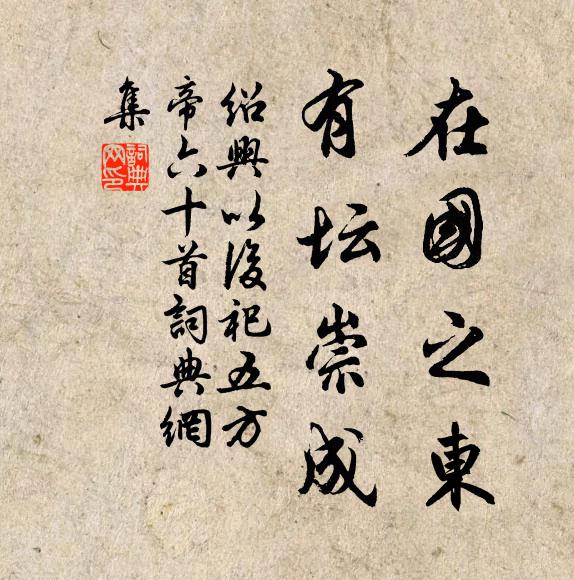 在國之東
有坛崇成
紹興以後祀五方
帝六十首詞典網
集
詞典
网印